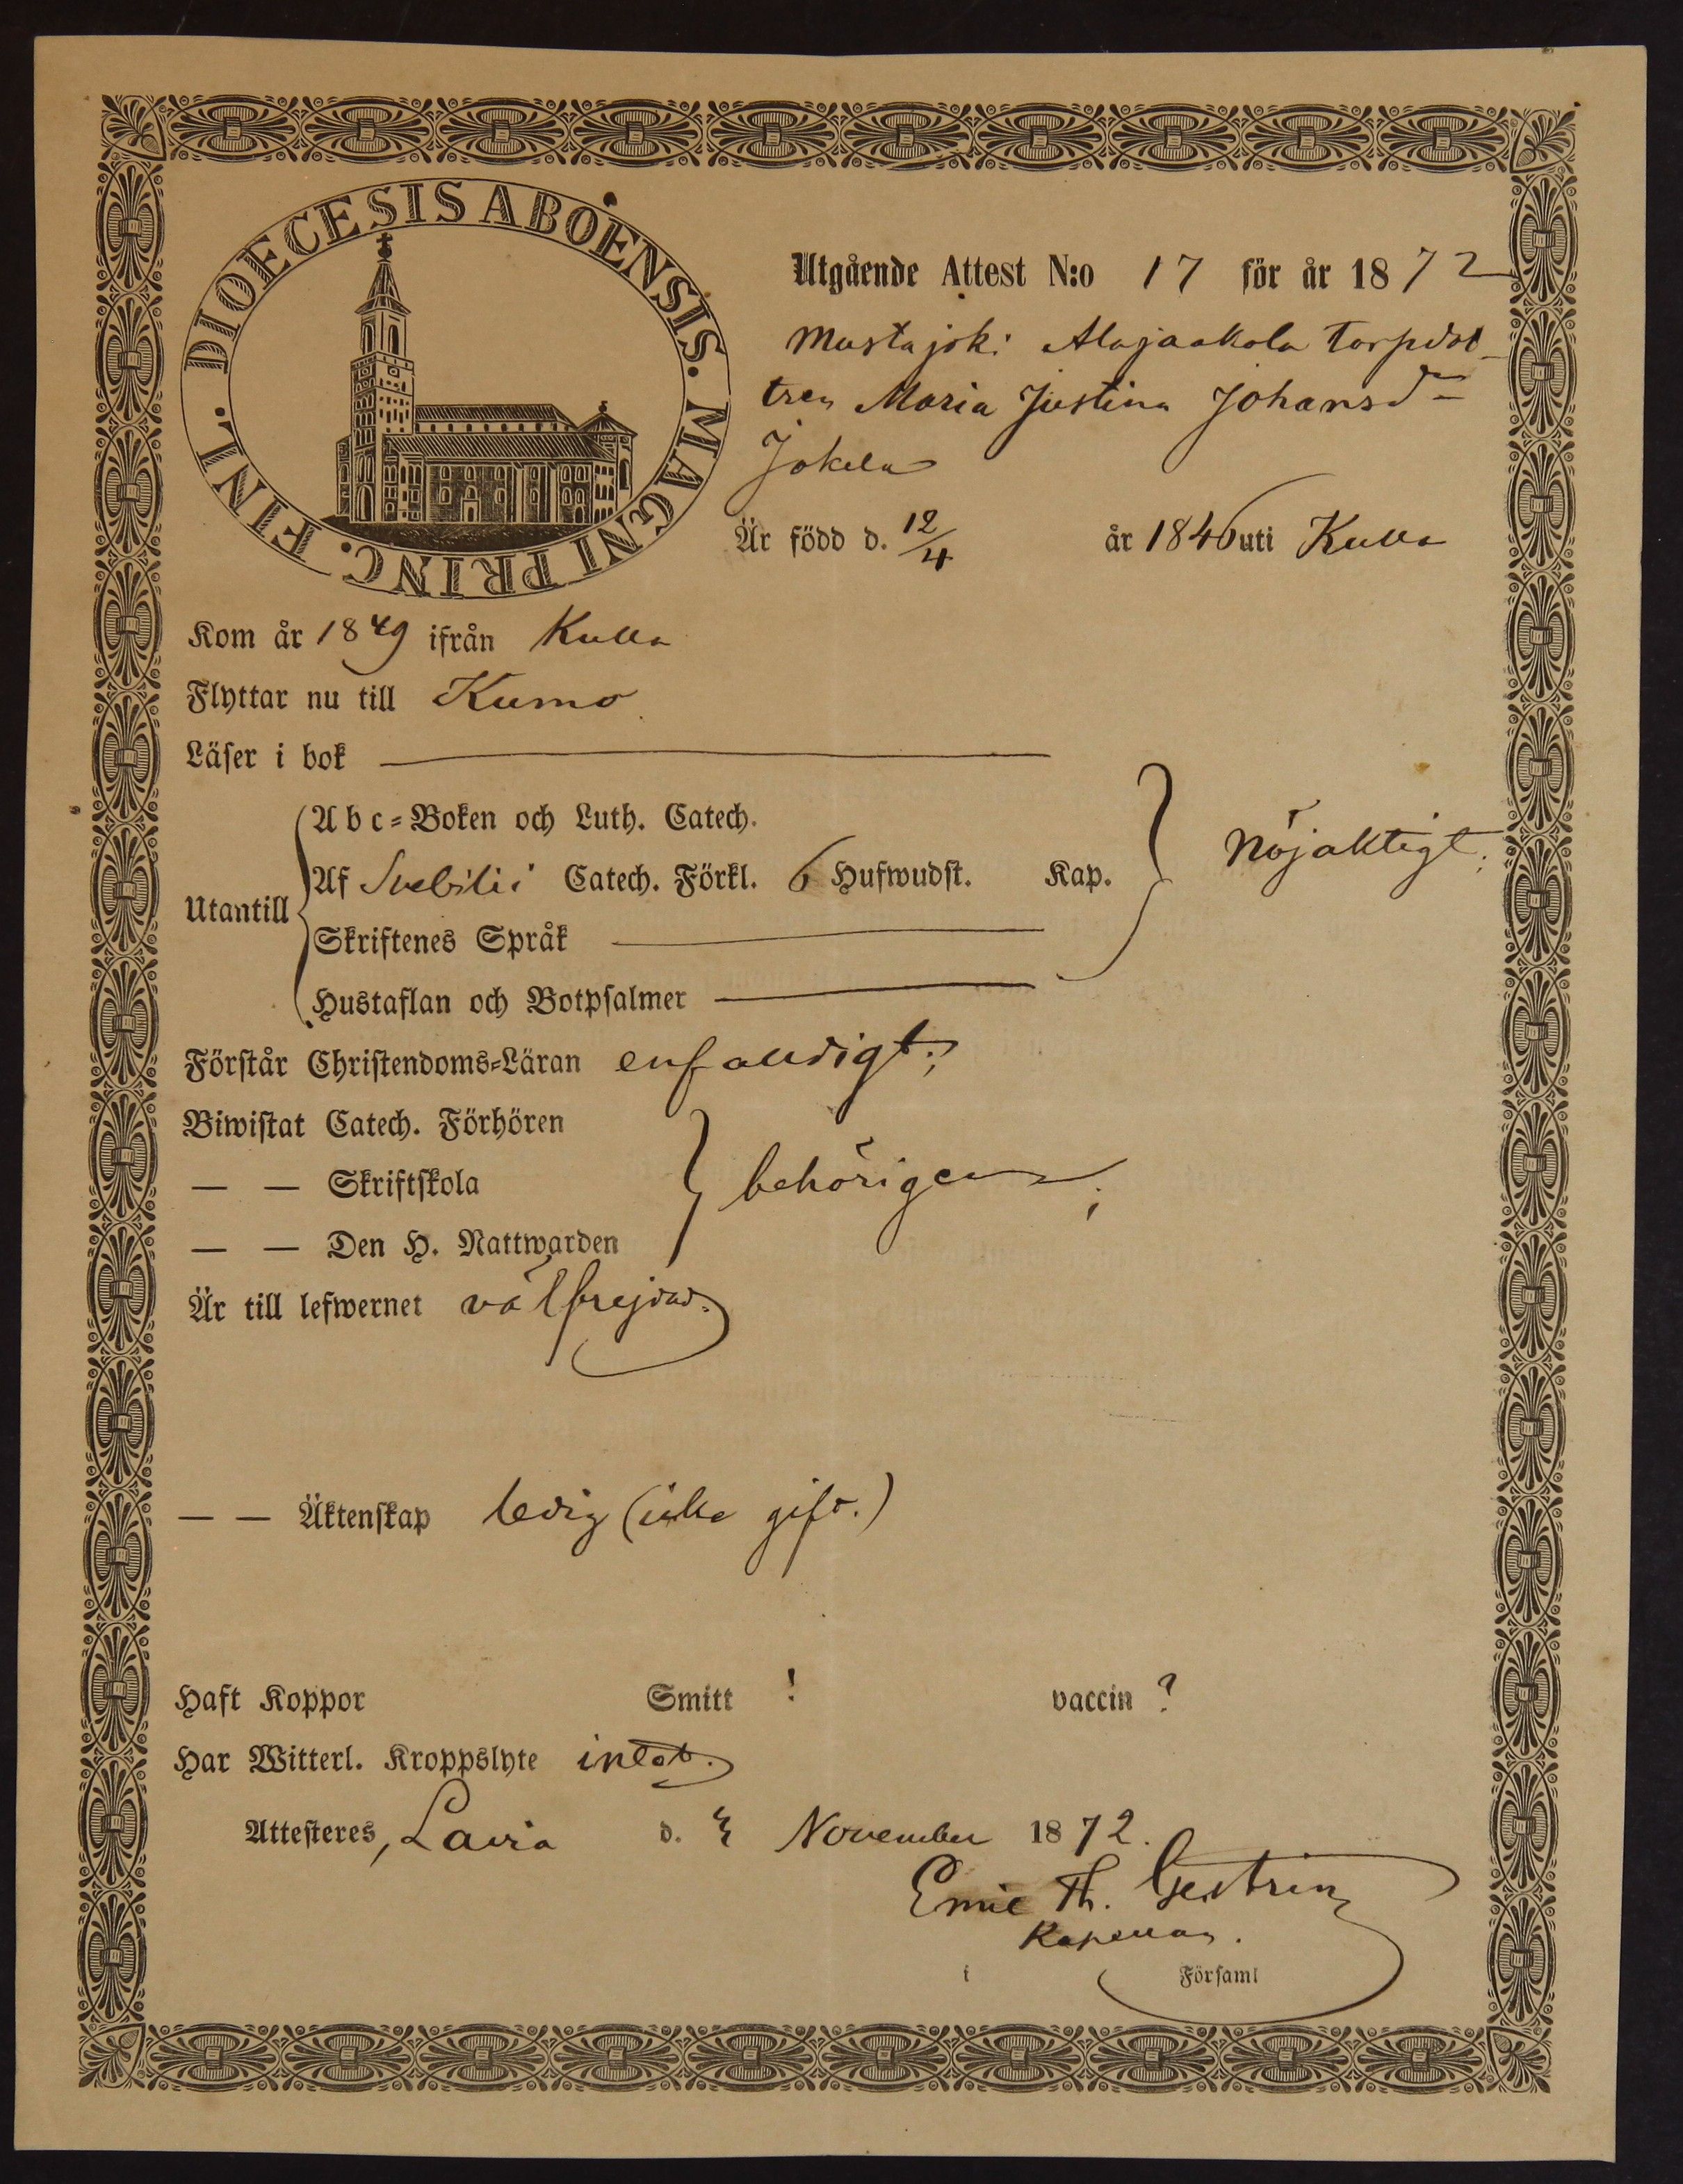 DIOECESIS ABOËNSIS. MAGNI PRINC. FINL.
Utgående Attest N:o 17 för år 1872
Mustajoki Alajaakola torpdot-
tren Maria Justina Johansdr
Jokela
Är född d. 12/4 år 1846 uti Kulla
Kom år 1849 ifrån Kulla
Flyttar nu till Kumo
Läser i bok
Utantill
Abc-Boken och Luth. Catech.
Af Svebilii Catech. Förkl. 6 Hufwudst. Kap.
Nöjaktigt.
Skriftenes Språk
Hustaflan och Botpsalmer
Förstår Christendoms-Läran enfaldigt;
Biwistat Catech. Förhören
— — Skriftskola
behörigen;
— — Den H. Nattwarden
Är till lefwernet välfrejdad.
— — Äktenskap ledig (icke gift.)
Haft Koppor Smitt ! vaccin ?
Har Witterl. Kroppslyte intet.
Attesteres, Lavia d. November 1872.
Emil Th. Gestrin
Kapellan.
i Församl